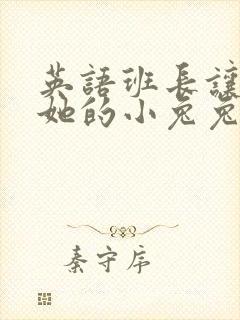 英語班長讓
她的小兔兔
秦守序